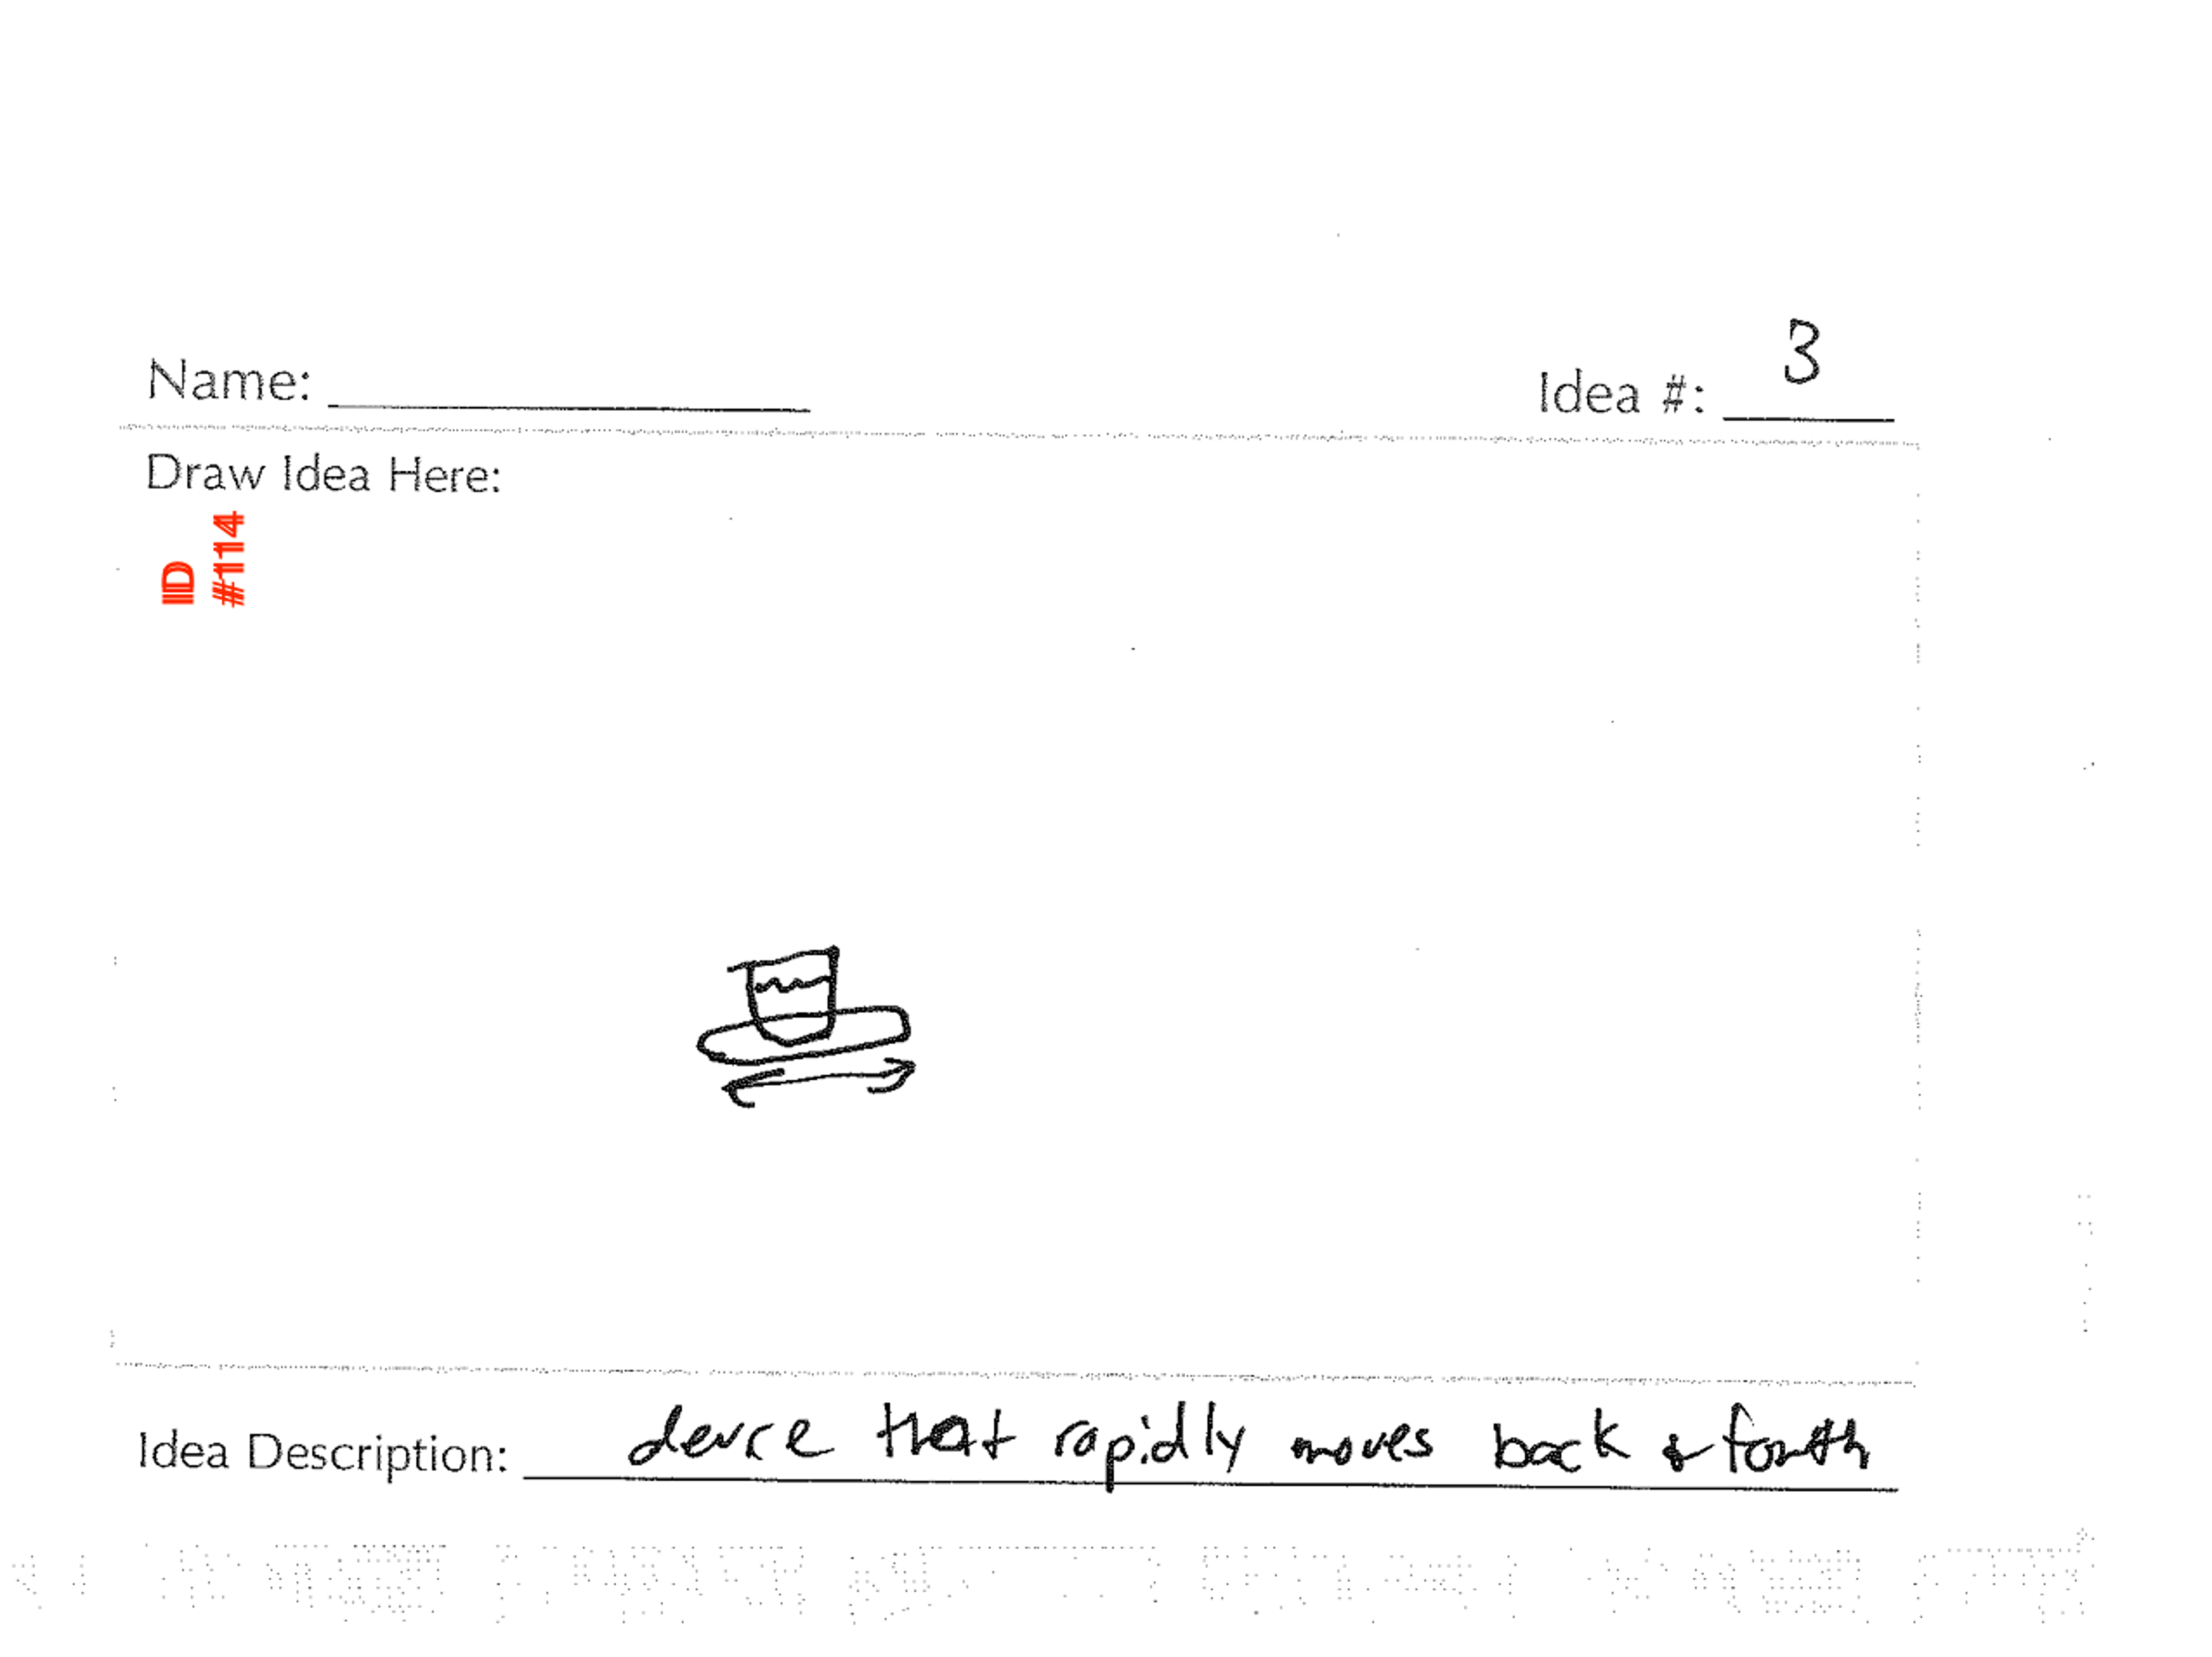 Name:
Idea #: 3
Draw Idea Here:
ID
#114
Idea Description: device that rapidly moves back & fourth